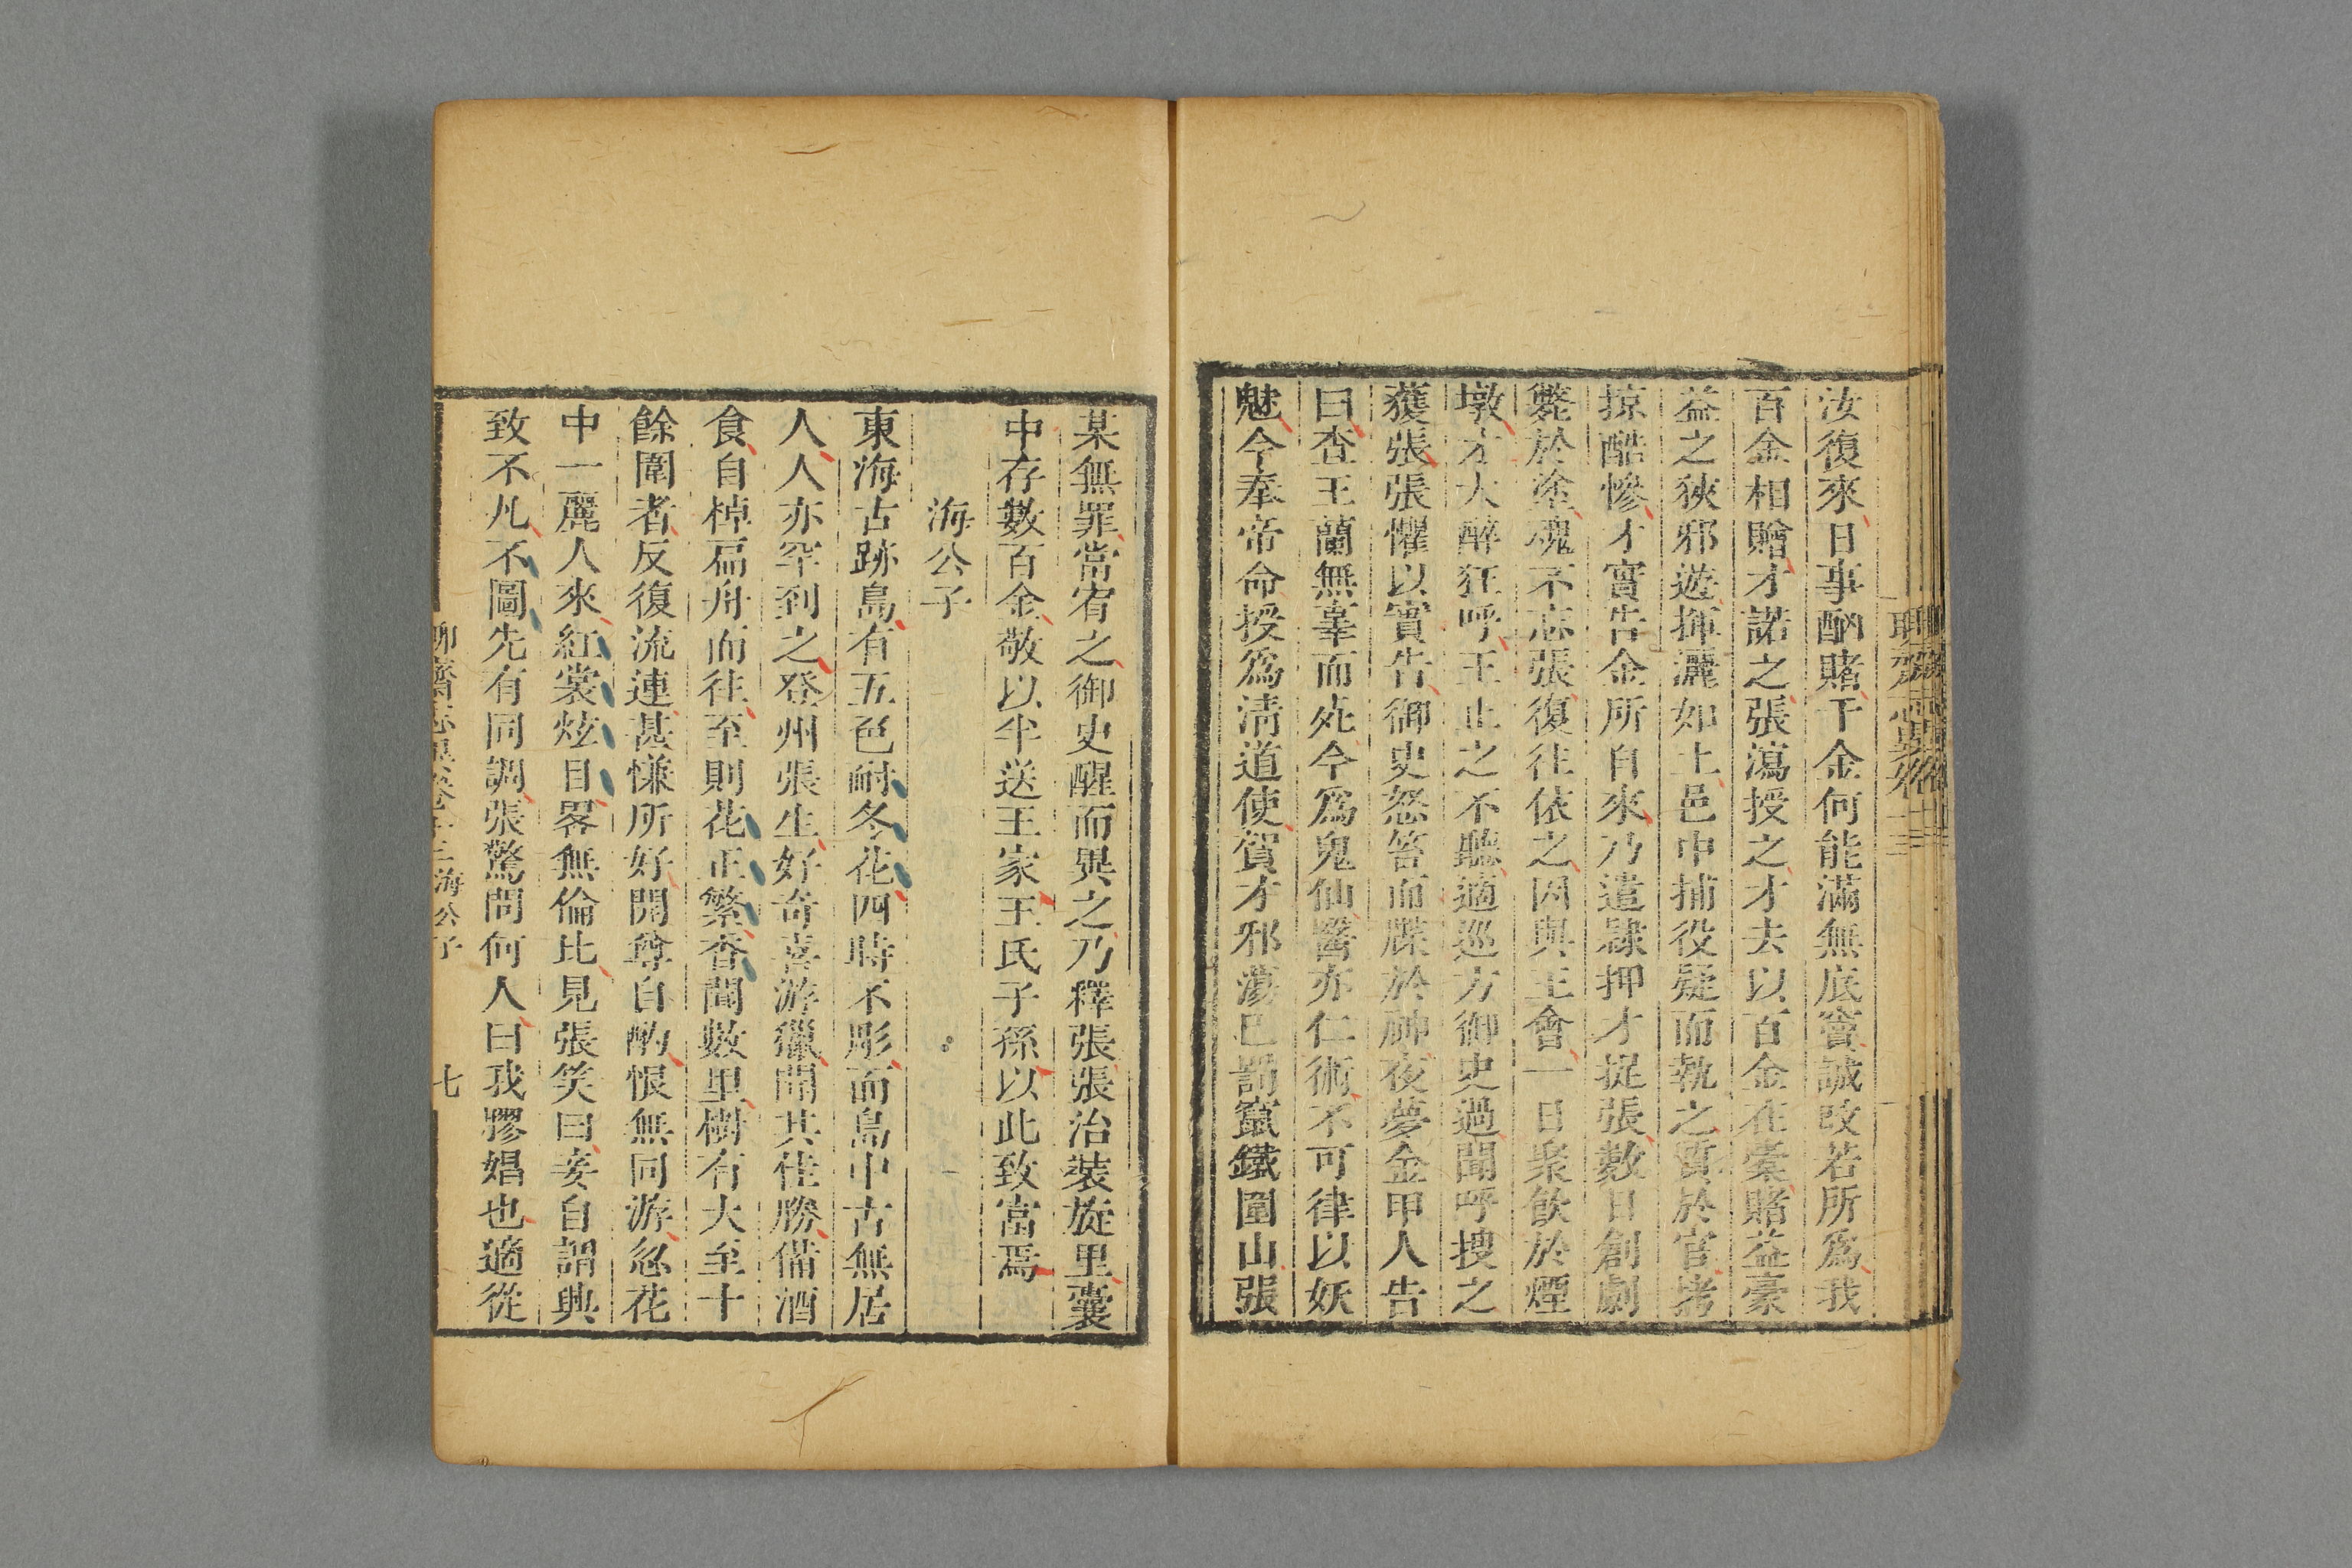 汝復來日事酗賭千金何能滿無底竇誠改若所爲我
百金相贈才諾之張瀉授之才去以百金在橐賭益豪
益之狹邪遊揮灑如土邑中捕役疑而執之質於官拷
掠酷慘才實告金所自來乃遣隸押才捉張數日創劇
斃於塗魂不忘張復往依之因與王會一日聚飲於煙
墩才大醉狂呼王止之不聽適巡方御史過聞呼搜之
獲張張懼以實告御史怒笞而牒於神夜夢金甲人告
曰查王蘭無辜而死今爲鬼仙醫亦仁術不可律以妖
魅今奉帝命授爲清道使賀才邪蕩已罰竄鐵圍山張
某無罪當宥之御史醒而異之乃釋張張治裝旋里囊
中存數百金敬以半送王家王氏子孫以此致富焉
海公子
東海古跡島有五色耐冬花四時不彫而島中古無居
人人亦罕到之登州張生好奇喜游獵聞其佳勝備酒
食自棹扁舟而往至則花正繁香聞數里樹有大至十
餘圍者反復流連甚慊所好開尊自酌恨無同游忽花
中一麗人來紅裳炫目畧無倫比見張笑曰妾自謂興
致不凡不圖先有同調張驚問何人曰我膠娼也適從
海公子
七